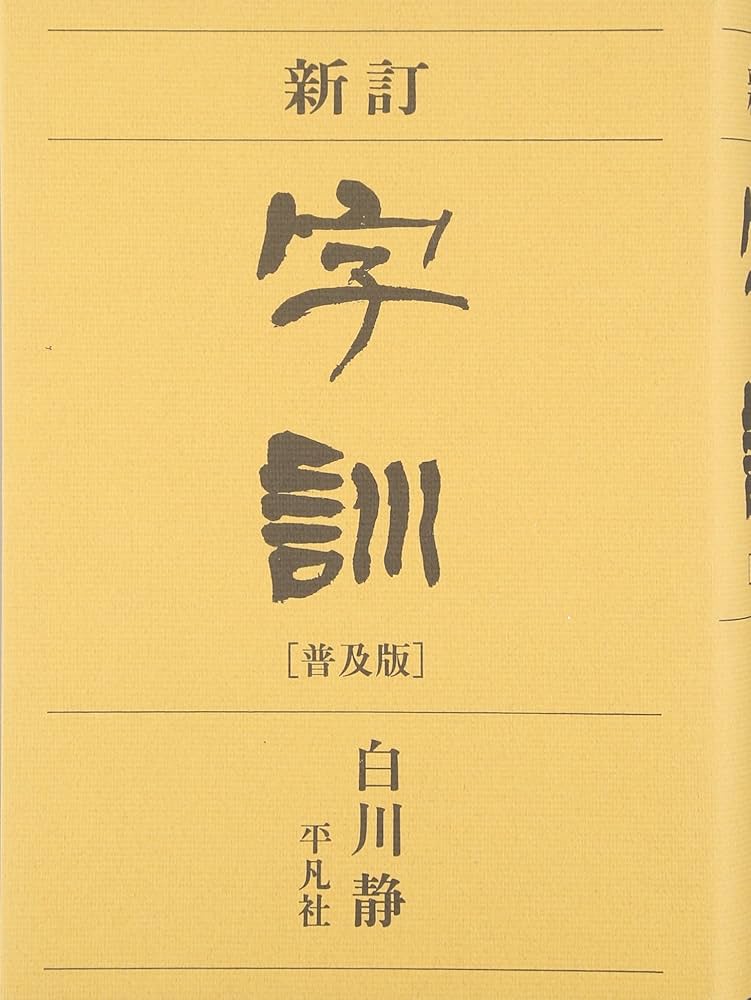 新訂
字訓
［普及版］
白川静
平凡社